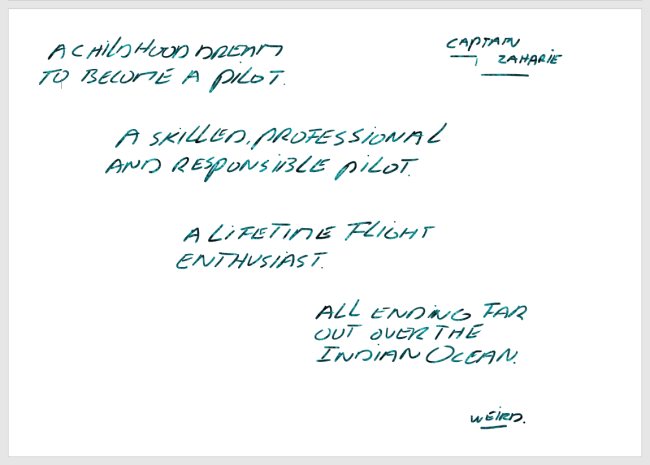 CAPTAIN
ZAHARIE
A CHILDHOOD DREAM
TO BECOME A PILOT.
A SKILLED, PROFESSIONAL
AND RESPONSIBLE PILOT.
A LIFETIME FLIGHT
ENTHUSIAST.
ALL ENDING FAR
OUT OVER THE
INDIAN OCEAN.
WEIRD.